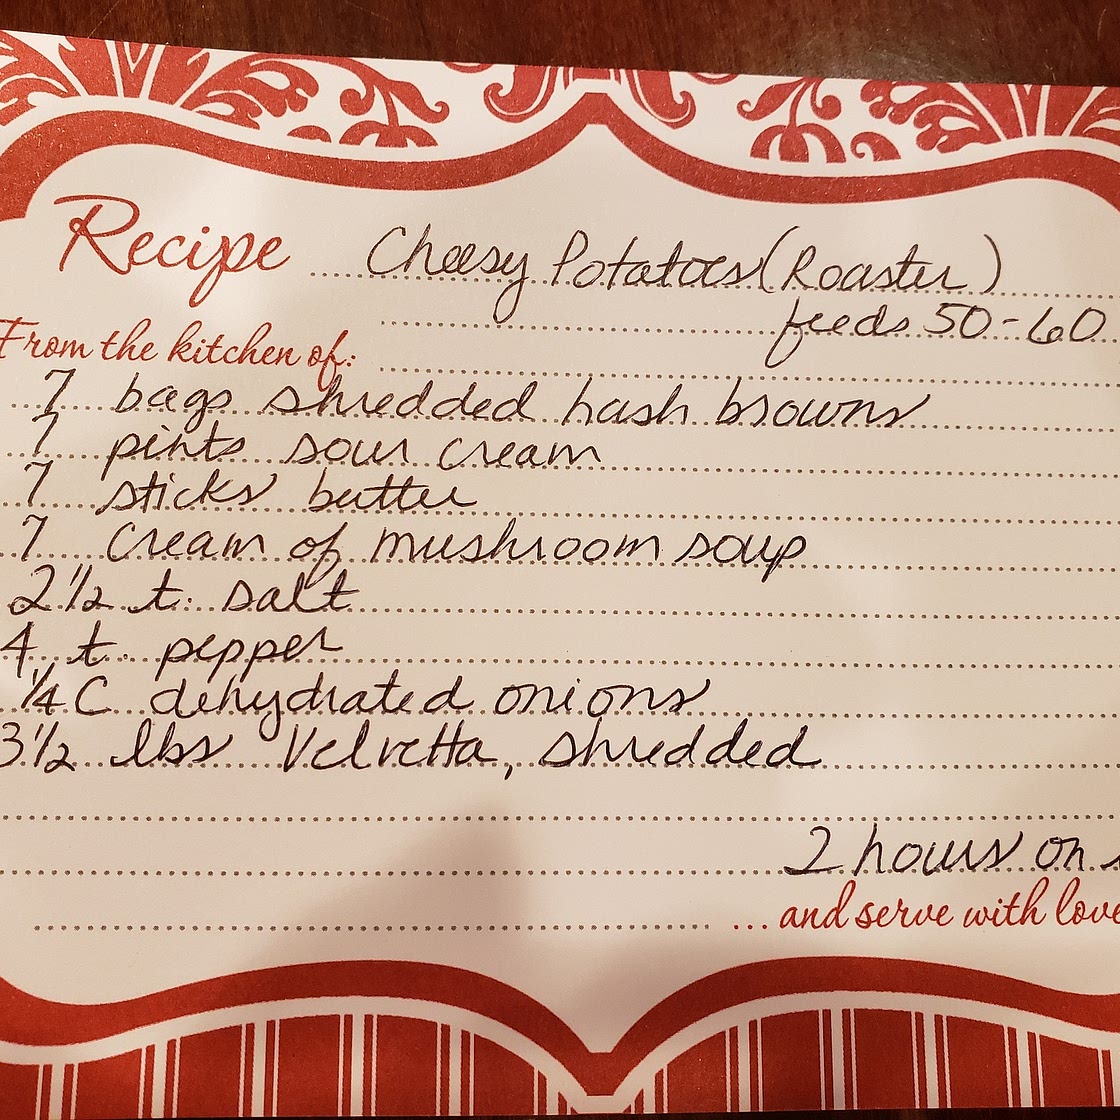 Recipe Cheesy Potatoes (Roaster)
feeds 50-60
From the kitchen of:
7 bags shredded hash browns
7 pints sour cream
7 sticks butter
7 Cream of mushroom soup
2 1/2 t. salt
4 t. pepper
1/4 C dehydrated onions
3 1/2 lbs Velvetta, shredded
2 hours on
... and serve with love